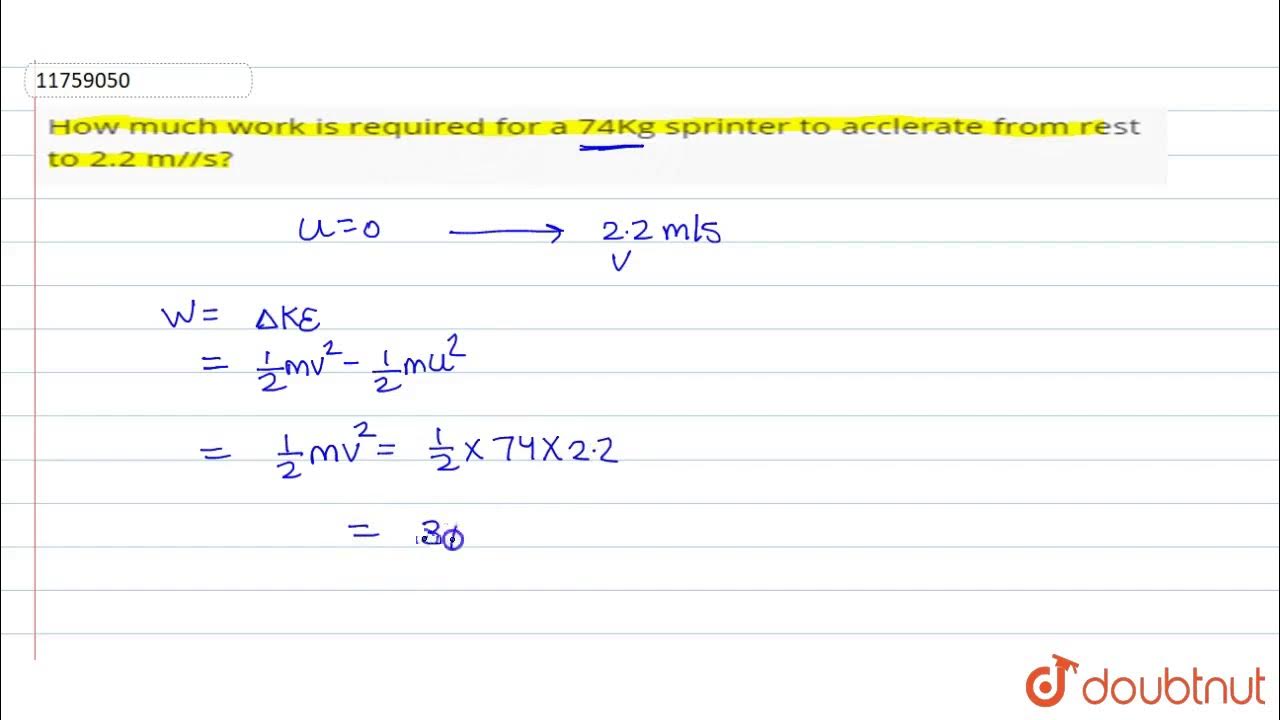 11759050
How much work is required for a 74Kg sprinter to acclerate from rest
to 2.2 m//s?
u=0 ⟶ 2.2 m/s
v
W = ΔKE
= 1/2 mv² - 1/2 mu²
= 1/2 mv² = 1/2 × 74 × 2.2
= 3
doubtnut